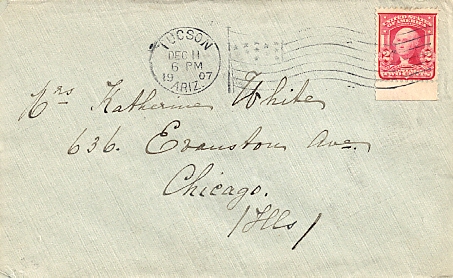 TUCSON
DEC 11
6 PM
1907
ARIZ.
UNITED STATES
OF AMERICA
2 2
TWO CENTS
Mrs Katherine White
636. Evanston Ave.
Chicago.
(Ills)